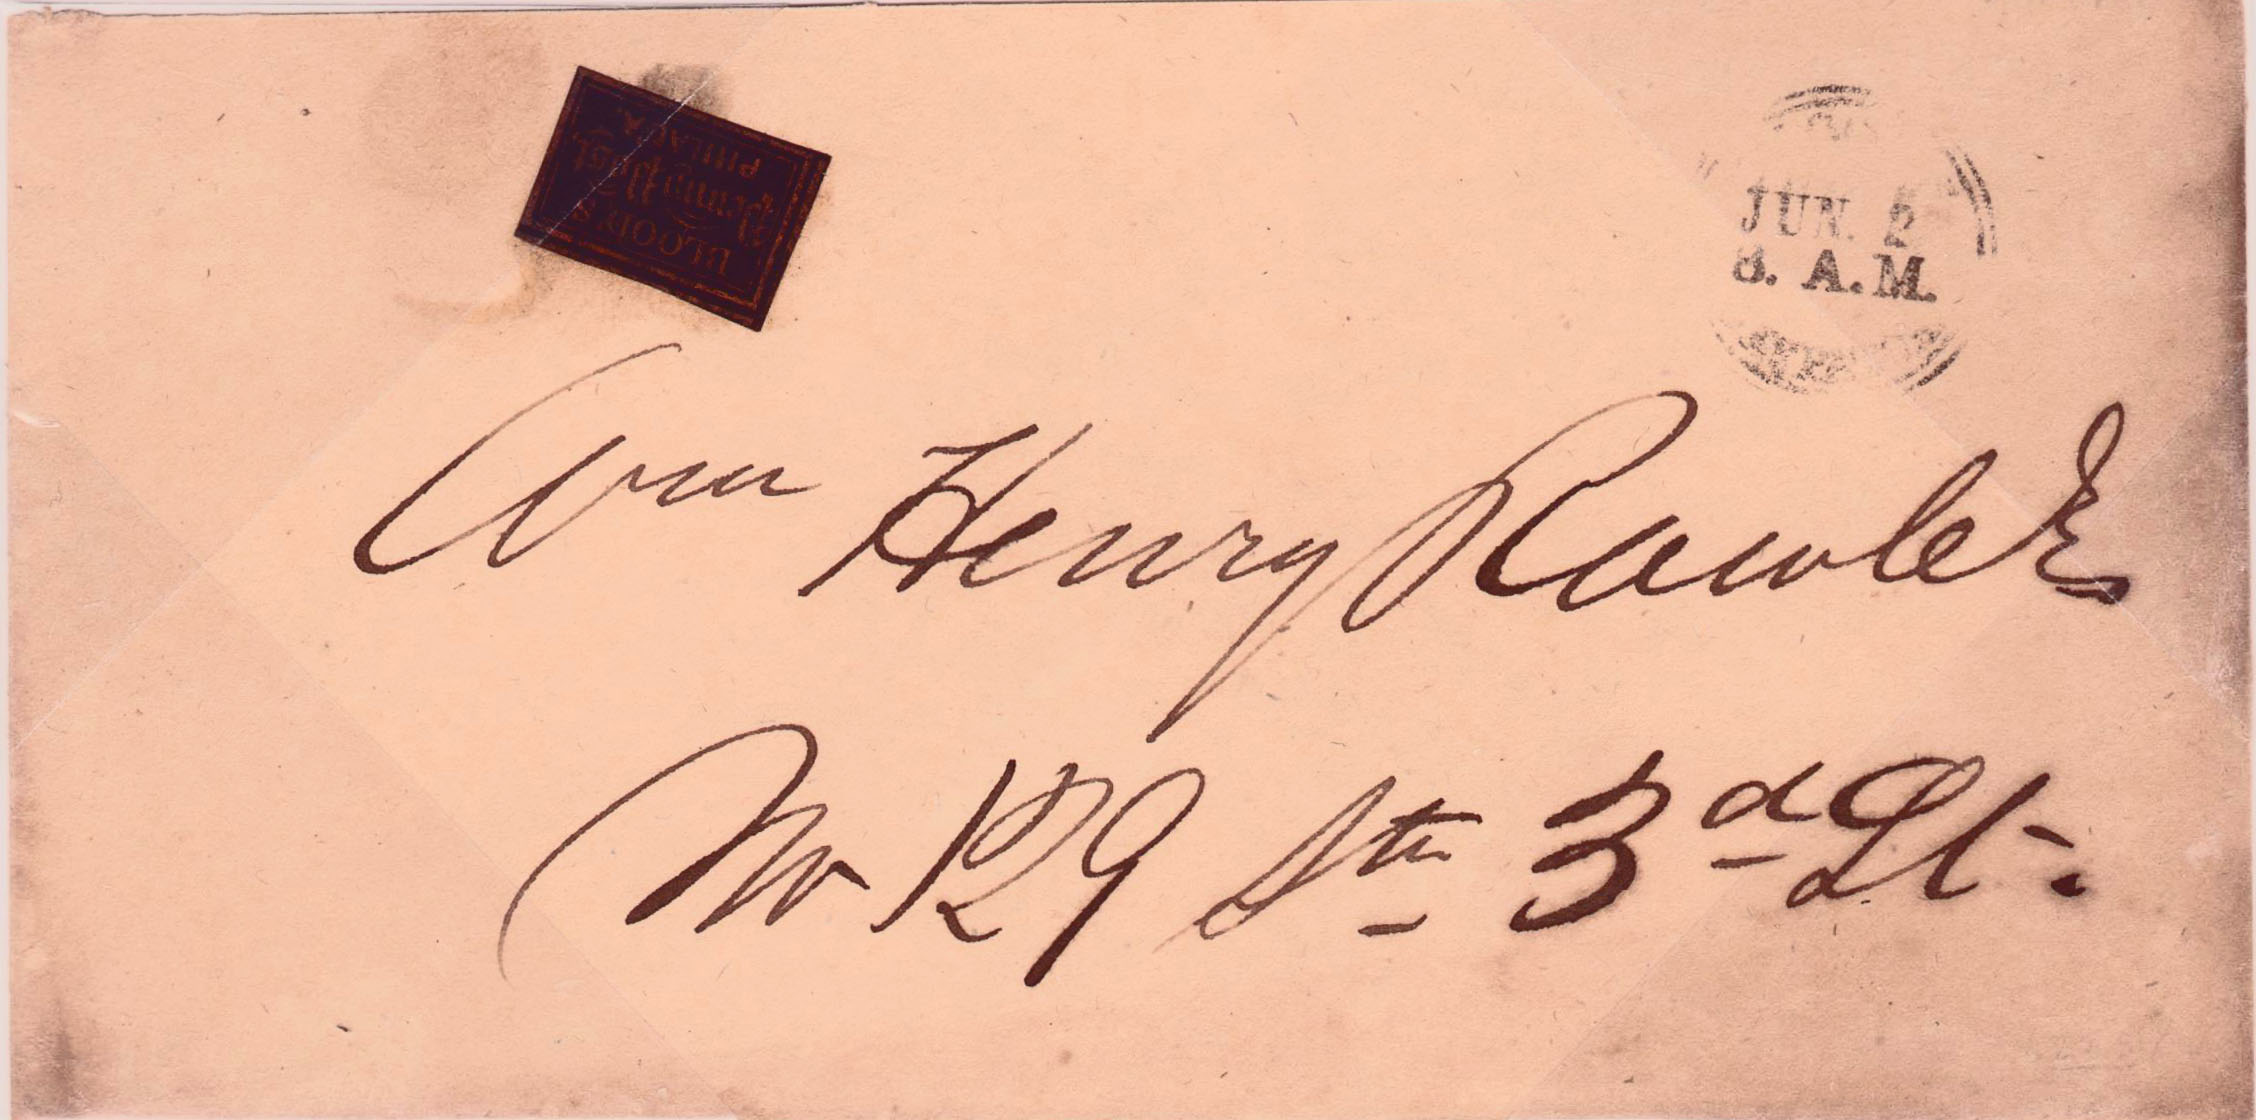 BLOOD'S
Penny Post,
PHILAD'A
JUN. 2
8. A.M.
Wm Henry Rawle
No 129 Sth 3d St.